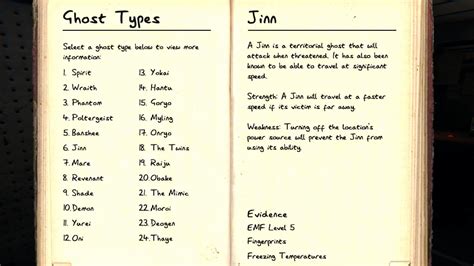 Ghost Types
Select a ghost type below to view more
information:
1. Spirit
2. Wraith
3. Phantom
4. Poltergeist
5. Banshee
6. Jinn
7. Mare
8. Revenant
9. Shade
10. Demon
11. Yurei
12. Oni
13. Yokai
14. Hantu
15. Goryo
16. Myling
17. Onryo
18. The Twins
19. Raiju
20. Obake
21. The Mimic
22. Moroi
23. Deogen
24. Thaye
Jinn
A Jinn is a territorial ghost that will
attack when threatened. It has also been
known to be able to travel at significant
speed.
Strength: A Jinn will travel at a faster
speed if its victim is far away.
Weakness: Turning off the location's
power source will prevent the Jinn from
using its ability.
Evidence
EMF Level 5
Fingerprints
Freezing Temperatures